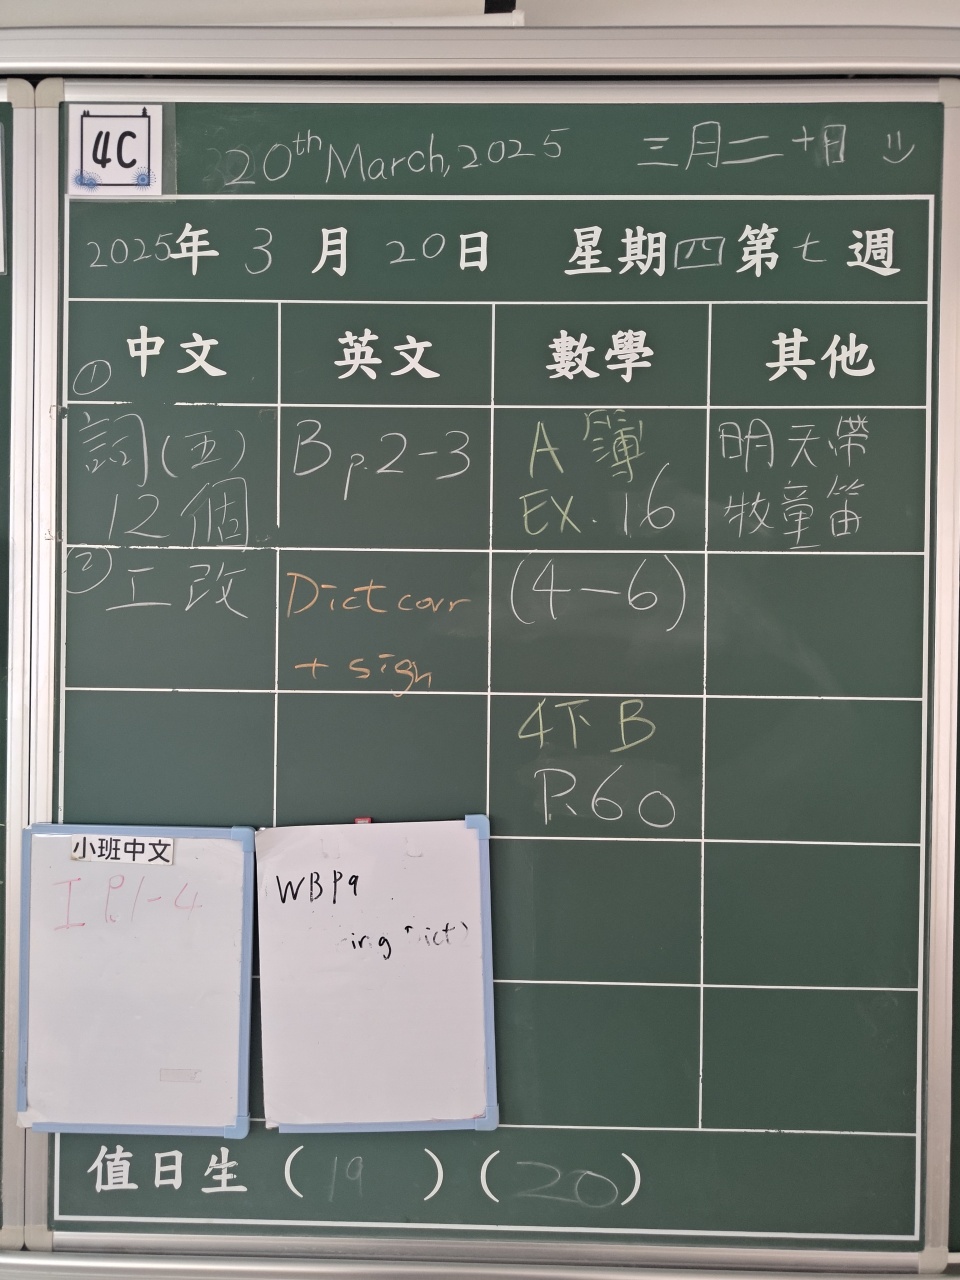 4C
20th March, 2025 三月二十日
2025年 3 月 20日 星期四第七週
中文 英文 數學 其他
① 詞(五)
12個
② 工改
B p.2-3
Dict corr
+ sign
A 簿
EX. 16
(4-6)
4下B
P.60
明天帶
牧童笛
小班中文
工 P.1-4
WB P9
值日生 ( 19 ) ( 20 )